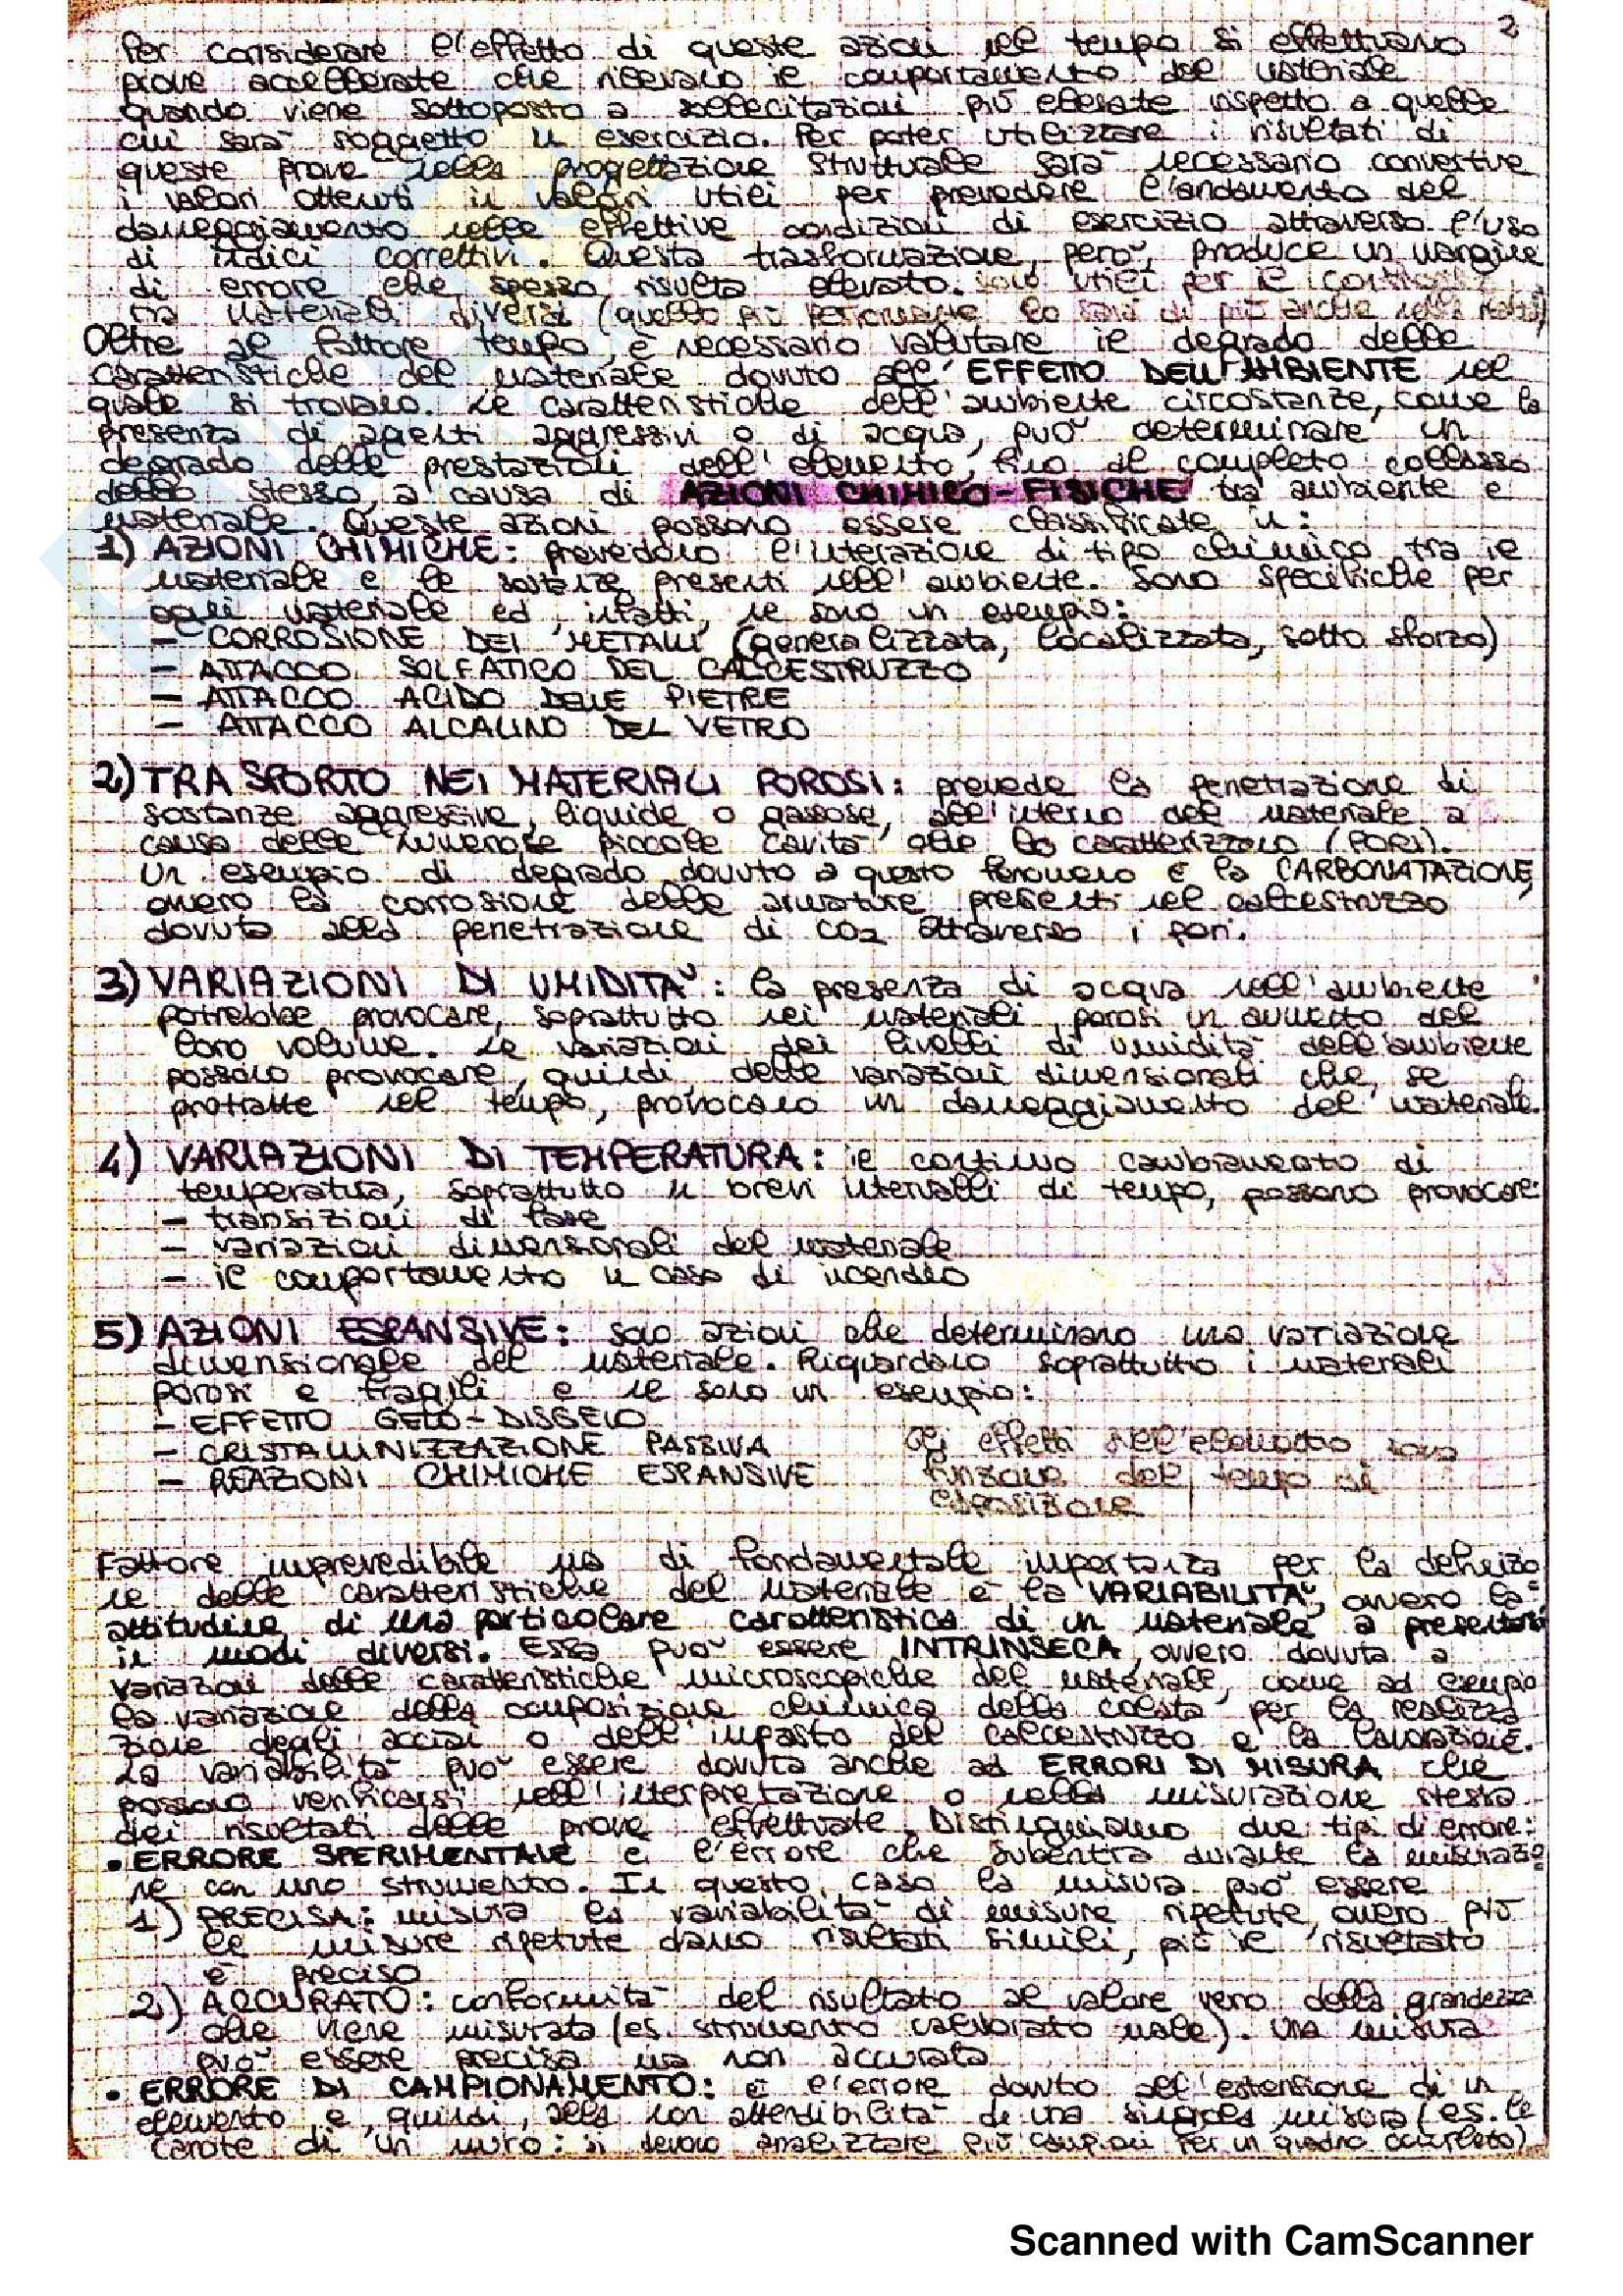 2
Per considerare l'effetto di queste azioni nel tempo si effettuano
prove accellerate che rilevano il comportamento del materiale
quando viene sottoposto a sollecitazioni più elevate rispetto a quelle
cui sarà soggetto in esercizio. Per poter utilizzare i risultati di
queste prove nella progettazione strutturale sarà necessario convertire
i valori ottenuti in valori utili per prevedere l'andamento del
danneggiamento nelle effettive condizioni di esercizio attraverso l'uso
di indici correttivi. Questa trasformazione, però, produce un margine
di errore che spesso risulta elevato. sono utili per il confronto
tra materiali diversi (quello più performante lo sarà di più anche nella realtà)
Oltre al fattore tempo, è necessario valutare il degrado delle
caratteristiche del materiale dovuto all'EFFETTO DELL'AMBIENTE nel
quale si trovano. Le caratteristiche dell'ambiente circostante, come la
presenza di agenti aggressivi o di acqua, può determinare un
degrado delle prestazioni dell'elemento, fino al completo collasso
dello stesso, a causa di AZIONI CHIMICO-FISICHE tra ambiente e
materiale. Queste azioni possono essere classificate in:
1) AZIONI CHIMICHE: prevedono l'interazione di tipo chimico tra il
materiale e le sostanze presenti nell'ambiente. Sono specifiche per
ogni materiale ed, infatti, ne sono un esempio:
- CORROSIONE DEI METALLI (generalizzata, localizzata, sotto sforzo)
- ATTACCO SOLFATICO DEL CALCESTRUZZO
- ATTACCO ACIDO DELLE PIETRE
- ATTACCO ALCALINO DEL VETRO
2) TRASPORTO NEI MATERIALI POROSI: prevede la penetrazione di
sostanze aggressive, liquide o gassose, all'interno del materiale a
causa delle numerose piccole cavità che lo caratterizzano (PORI).
Un esempio di degrado dovuto a questo fenomeno è la CARBONATAZIONE,
ovvero la corrosione delle armature presenti nel calcestruzzo
dovuta alla penetrazione di CO2 attraverso i pori.
3) VARIAZIONI DI UMIDITA': la presenza di acqua nell'ambiente
potrebbe provocare, soprattutto nei materiali porosi un aumento del
loro volume. Le variazioni dei livelli di umidità dell'ambiente
possono provocare, quindi, delle variazioni dimensionali che, se
protratte nel tempo, provocano un danneggiamento del materiale.
4) VARIAZIONI DI TEMPERATURA: il continuo cambiamento di
temperatura, soprattutto in brevi intervalli di tempo, possono provocare:
- transizioni di fase
- variazioni dimensionali del materiale
- il comportamento in caso di incendio
5) AZIONI ESPANSIVE: sono azioni che determinano una variazione
dimensionale del materiale. Riguardano soprattutto i materiali
porosi e fragili e ne sono un esempio:
- EFFETTO GELO-DISGELO
- CRISTALLINIZZAZIONE PASSIVA
- REAZIONI CHIMICHE ESPANSIVE
Gli effetti nell'elemento sono
funzione del tempo di
esposizione
Fattore imprevedibile ma di fondamentale importanza per la definizio
ne delle caratteristiche del materiale è la VARIABILITA', ovvero la
attitudine di una particolare caratteristica di un materiale a presentarsi
in modi diversi. Essa può essere INTRINSECA, ovvero dovuta a
variazioni delle caratteristiche microscopiche del materiale, come ad esempio
la variazione della composizione chimica della colata per la realizza
zione degli acciai o dell'impasto del calcestruzzo e la lavorazione.
La variabilità può essere dovuta anche ad ERRORI DI MISURA che
possono verificarsi nell'interpretazione o nella misurazione stessa
dei risultati delle prove effettuate. Distinguiamo due tipi di errore:
• ERRORE SPERIMENTALE è l'errore che subentra durante la misurazio
ne con uno strumento. In questo caso la misura può essere
1) PRECISA: misura la variabilità di misure ripetute, ovvero più
le misure ripetute danno risultati simili, più il risultato
è preciso
2) ACCURATO: conformità del risultato al valore vero della grandezza
che viene misurata (es. strumento calibrato male). Una misura
può essere precisa ma non accurata
• ERRORE DI CAMPIONAMENTO: è l'errore dovuto all'estensione di un
elemento e, quindi, alla non attendibilità di una singola misura (es. le
carote di un muro: si devono analizzare più campioni per un quadro completo)
Scanned with CamScanner